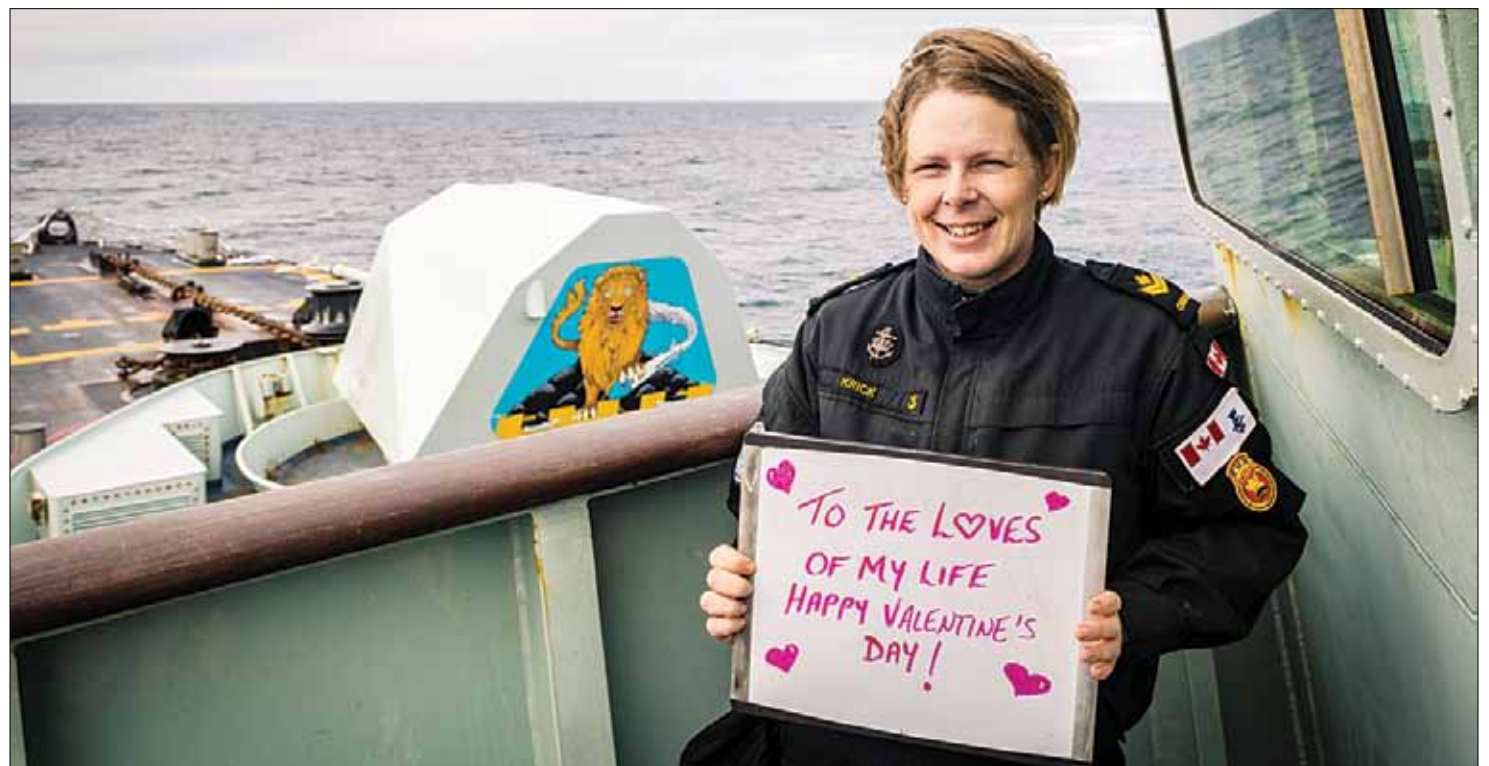 KRICK
TO THE LOVES
OF MY LIFE
HAPPY VALENTINE'S
DAY!